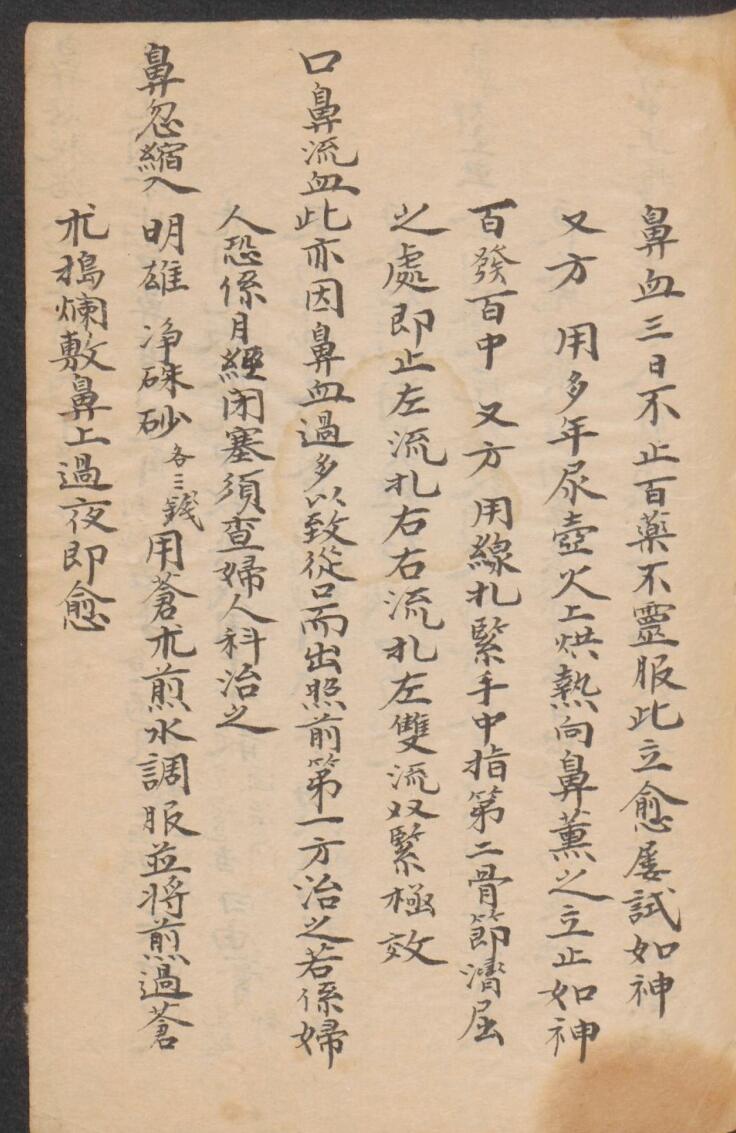 鼻血三日不止百藥不靈服此立愈屡試如神
又方　用多年尿壺火上烘熱向鼻薰之立止如神
百發百中　又方　用線扎緊手中指第二骨節濟屈
之處即止左流扎右右流扎左雙流双緊極效
口鼻流血此亦因鼻血過多以致從口而出照前第一方治之若係婦
人恐係月經闭塞須查婦人科治之
鼻忽縮入　明雄　净硃砂各三錢用蒼朮煎水調服並将煎過蒼
朮搗爛敷鼻上過夜即愈